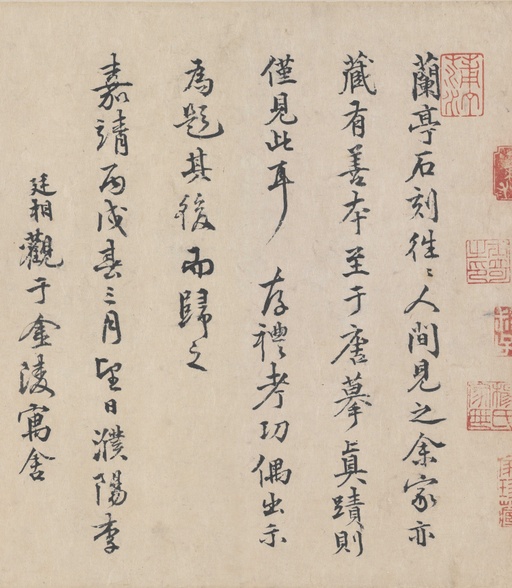 蘭亭石刻往〻人間見之余家亦
藏有善本至于唐摹真蹟則
僅見此耳 存禮考功偶出示
為題其後而歸之
嘉靖丙戌春三月望日濮陽李
廷相觀于金陵寓舍